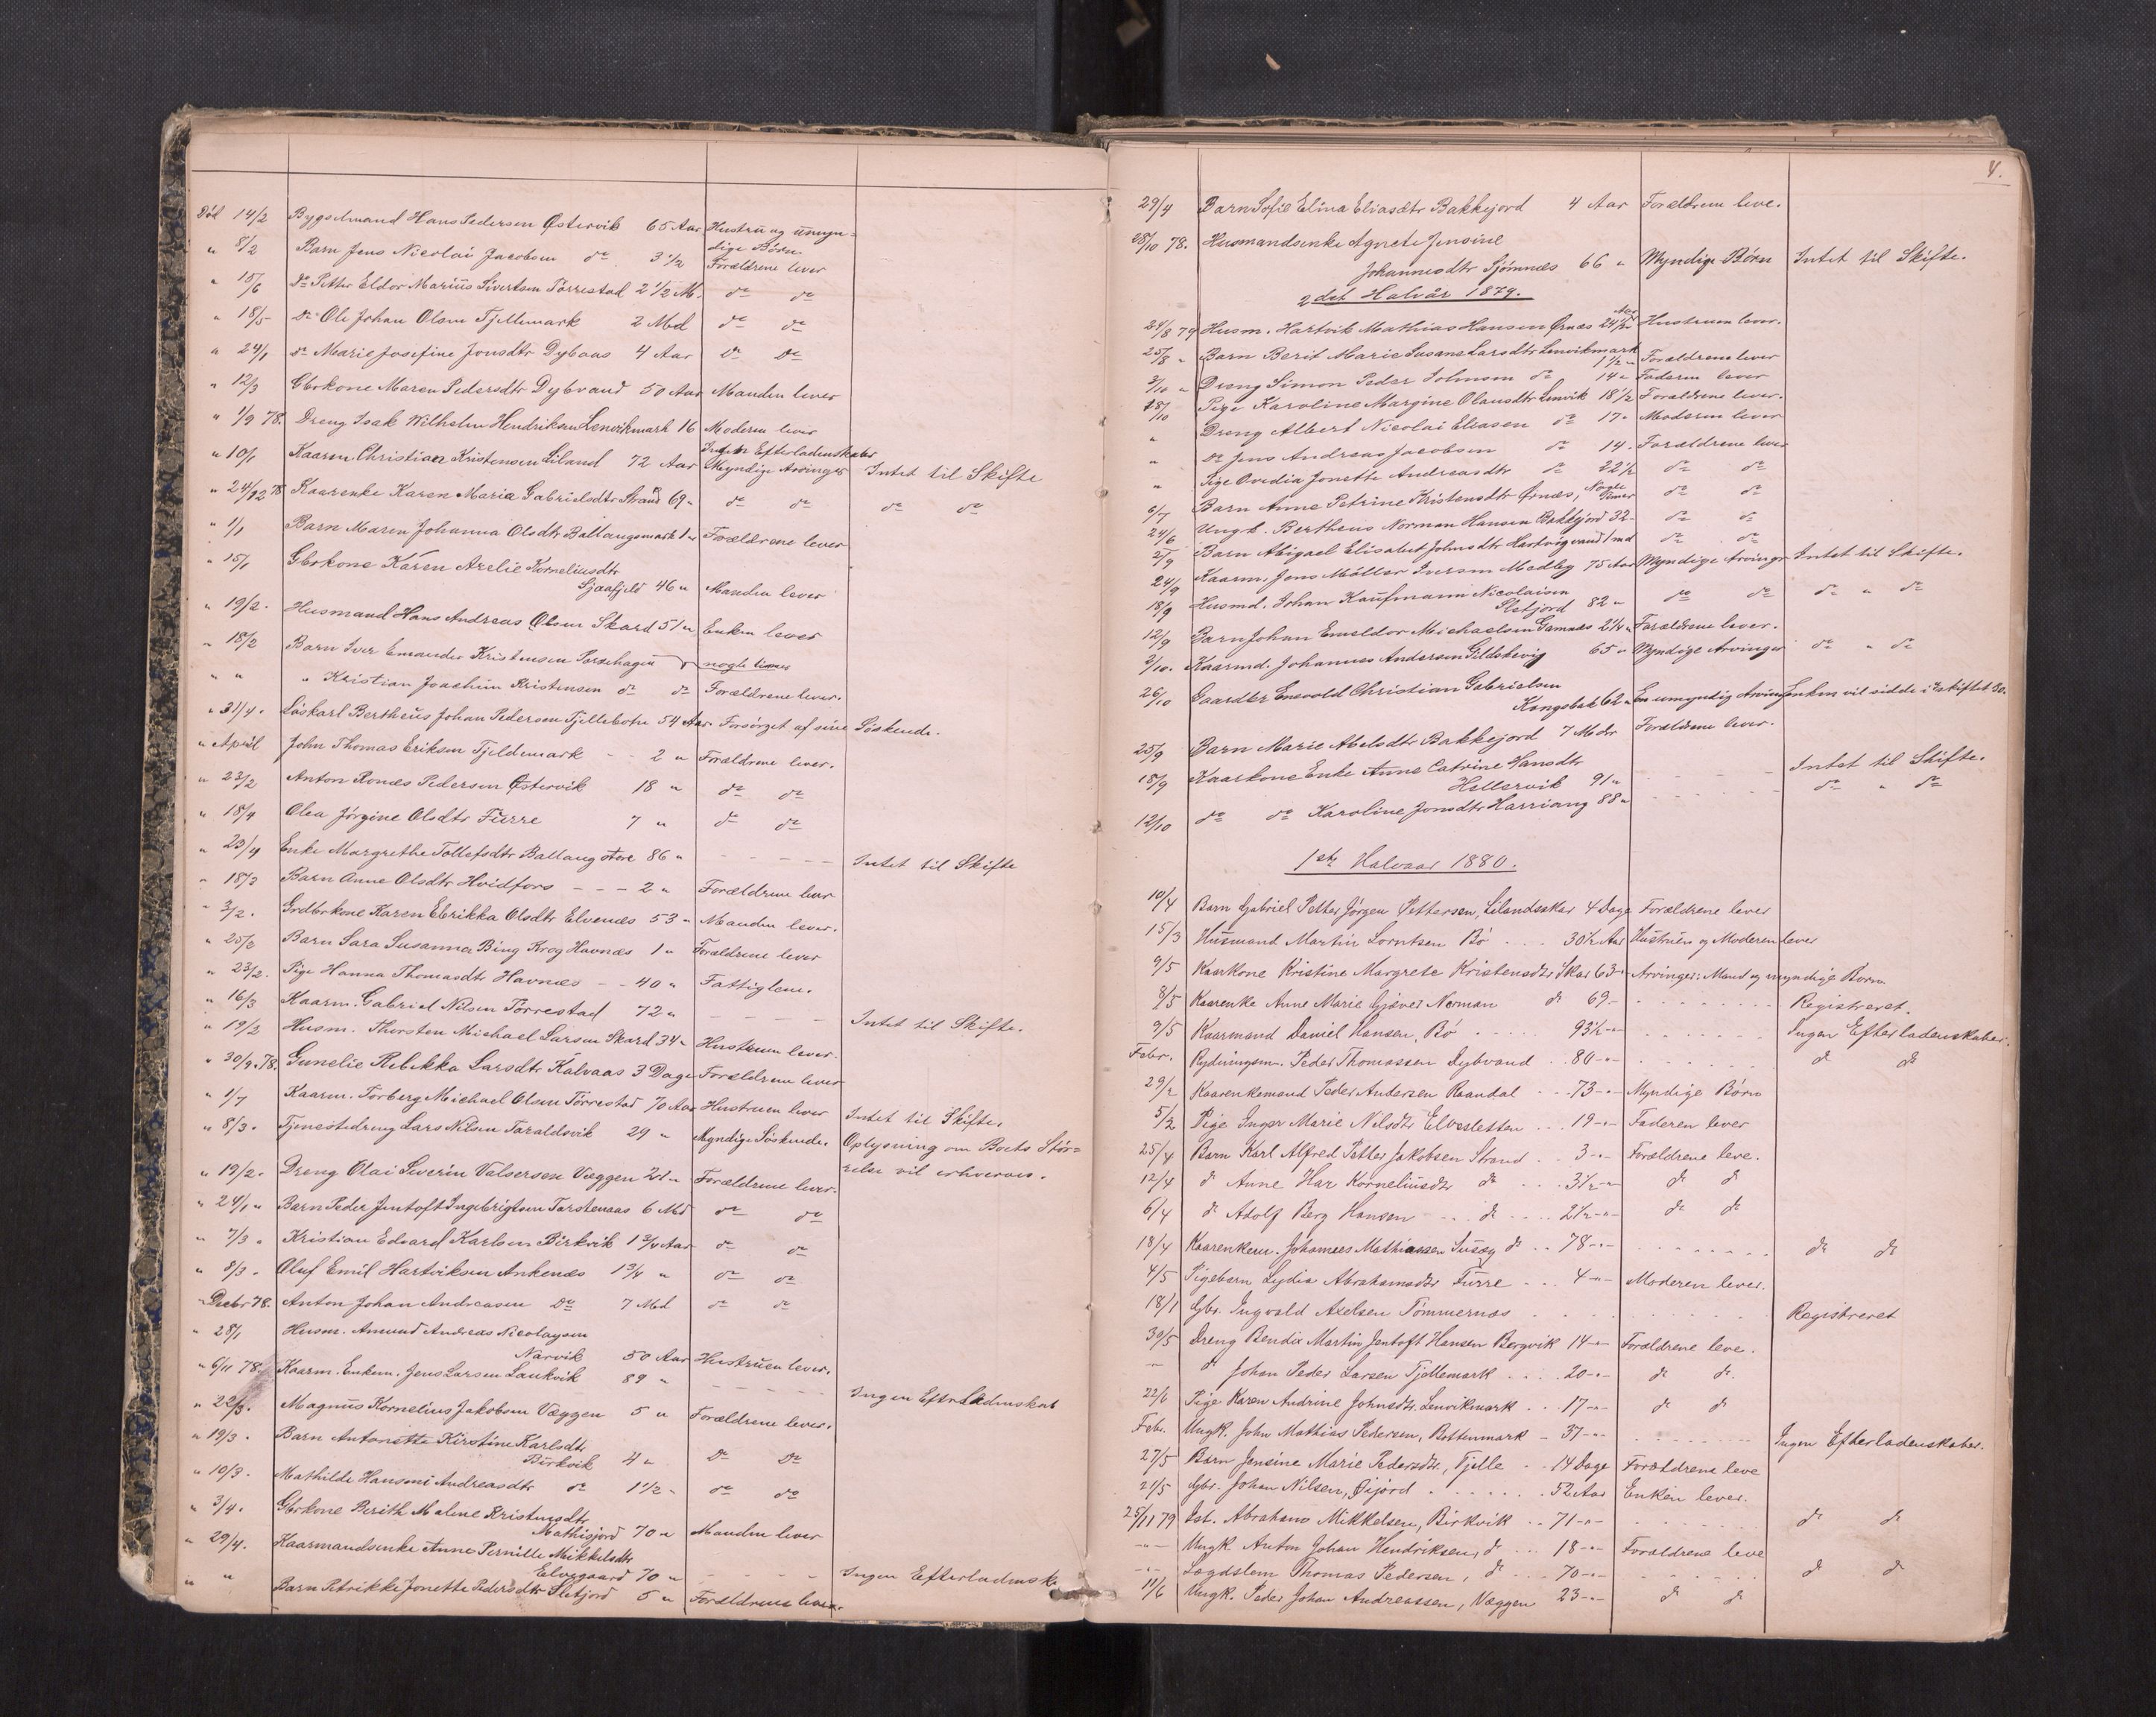 Död 14/2 Bygselmand Hans Pedersen Østervik 65 Aar Hustru og umyn-
dige Børn
" 8/2 Barn Jens Nicolai Jacobsen do 3 1/2 Forældrene lever
" 18/6 do Petter Eldor Marius Sivertsen Törrestad 2 1/2 M. do do
" 18/5 do Ole Johan Olsen Tjellemark 2 Md do do
" 24/1 do Marie Josefine Jonsdtr Dybaas 4 Aar do do
" 12/3 Gbrkone Maren Pedersdtr Dybvand 50 Aar Manden lever
" 1/9 78. Dreng Isak Wilhelm Hendriksen Lenvikmark 16 Moderen lever
Ingen Efterladenskaber
" 10/1 Kaarm. Christian Kristensen Liland 72 Aar Myndige Arvinger Intet til Skifte
" 24/12 78 Kaarenke Karen Maria Gabrielsdtr Strand 69 " do do do do
" 1/1 Barn Maren Johanna Olsdtr Ballangsmark 1 " Forældrene lever
" 15/1 Gbrkone Karen Azelie Korneliusdtr
Sjaafjeld 46 " Manden lever
" 19/2. Husmand Hans Andreas Olsen Skard 51 " Enken lever
" 18/2 Barn Iver Emander Kristensen Porsehagen nogle timer
" " " Kristian Joachim Kristensen do do Forældrene lever.
" 21/4. Löskarl Bertheus Johan Pedersen Tjellebotn 54 Aar. Forsörget af sine Söskende.
" April John Thomas Eriksen Tjeldemark - - 2 " Forældrene lever.
" 23/2 Anton Ronæs Pedersen Östervik 18 " do do
" 18/4 Olea Jörgine Olsdtr Furre 7 " do do
" 23/4 Enke Margrethe Tollefsdtr Ballang øvre 86 " - - - - - Intet til Skifte
" 18/3 Barn Anne Olsdtr Hvidfors - - - 2 " Forældrene lever
" 3/2. Grdbrkone Karen Elerikka Olsdtr Elvenes 53 " Manden lever.
" 25/2 Barn Sara Susanna Bing Krog Havnæs 1 " Forældrene lever
" 23/2. Pige Hanna Thomasdtr Havnæs - - 40 " Fattiglem.
" 16/3 Kaarm. Gabriel Nilsen Törrestad 72 " - - - - - Intet til Skifte.
" 19/2 Husm. Thorsten Michael Larsen Skard 34 " Hustruen lever.
" 30/9.78. Gunelie Rebekka Larsdtr Kalvaas 3 Dage Forældrene lever
" 1/7 Kaarm. Torberg Michael Olsen Törrestad 70 Aar Hustruen lever Intet til Skifte.
" 8/3. Tjenestedreng Lars Nilsen Taraldsvik 29 " Myndige Söskende. Oplysning om Boets Stör-
relse vil erhverves.
" 19/2. Dreng Olai Severin Valsersen Væggen 21 " Forældrene lever.
" 24/1 " Barn Peder Jentoft Ingebrigtsen Tarstenaas 6 Md do do
" 7/3 " Kristian Edvard Karlsen Birkvik 1 3/4 Aar do do
" 8/3 " Oluf Emil Hartviksen Ankenæs 1 3/4 " do do
" Decbr 78. Anton Johan Andreasen do 7 Md do do
" 28/1 Husm. Amund Andreas Nicolaysen
Narvik 50 Aar Hustruen lever.
" 6/11 78. Kaarm. Enkem. Jens Larsen Laukvik 89 " - - - - - Ingen Efterladenskab
" 22/3. Magnus Kornelius Jakobsen Væggen 5 " Forældrene lever.
" 19/3. Barn Antonette Kirstine Karlsdtr
Birkvik 4 " do do
" 10/3. Mathilde Hansmi Andreasdtr do 1 1/2 " do do
" 3/4. Gbrkone Berith Malene Kristensdtr
Mathisjord 70 " Manden lever
" 29/4. Kaarmandsenke Anne Pernille Mikkelsdtr
Elvegaard 70 " - - - - Ingen Efterladensk.
" " Barn Petrikke Jonette Pedersdtr Sletjord 5 " Forældrene lever.
4.
29/4 Barn Sofie Elina Eliasdtr Bakkejord 4 Aar Forældrene leve.
28/10 78. Husmandsenke Agnete Jensine
Johannesdtr Sjömnæs 66 " Myndige Börn Intet til Skifte.
2det Halvår 1879.
24/8 79 Husm. Hartvik Mathias Hansen Örnæs 24 1/2 Aar Hustruen lever.
25/8 " Barn Berit Marie Susane Larsdtr Lenvikmark
1 1/2 " Forældrene lever
2/10 " Dreng Simon Peder Johnsen do 14 " Faderen lever
28/10 Pige Karoline Margine Olausdtr Lenvik 18 1/2 Forældrene lever.
" Dreng Albert Nicolai Eliasen do 17 " Moderen lever
" do Jens Andreas Jacobsen do 14 " Forældrene lever
" Pige Ovedia Jonette Andreasdtr do 22 1/2 do do
6/7 Barn Anne Petrine Kristensdtr Örnæs, Nogle Timer do do
24/6 Ungk. Bertheus Norman Hansen Bakkejord 32 - do do
2/9 Barn Abigael Elisabet Johnsdtr Hartvigvand 1 md do do
24/9 Kaarm. Jens Möller Iversen Medby 75 Aar Myndige Arvinger Intet til Skifte.
18/9 Husmd. Johan Kaufmann Nicolaisen
Sletjord 82 " do do do " do
12/9 Barn Johan Emeldor Michaelsen Gamnæs 2 1/4 " Forældrene lever.
2/10. Kaarmd. Johannes Andersen Gildskevig 65 " Myndige Arvinger do " do
26/10 Gaardbr Ensvold Christian Gabrielsen
Kongsbak 62 " En umyndig Arving Enken vil sidde i uskiftet Bo.
25/9 Barn Marie Abelsdtr Bakkejord 7 Mdr Forældrene lever.
18/9 Kaarkone Enke Anne Catrine Hansdtr
Hellervik 91 " - - - - - Intet til Skifte.
12/10 do do Karoline Jonsdtr Harriang 88 " - - - - - do " do
1ste Halvaar 1880.
10/4 Barn Gabriel Petter Jörgen Pettersen, Lilandsskar 4 Dage Forældrene lever
15/3 Husmand Martin Lorntsen Bö . . . 30 1/2 Aar Hustruen og Moderen lever
9/5 Kaarkone Kristine Margrete Kristensdtr Skar 63 - Arvinger: Mand og myndige Born
8/5 Kaarenke Anne Marie Gjöver Norman do 69 - - - - - - Registreret.
9/5 Kaarmand Daniel Hansen, Bö . . . . 93 1/2 - - . . . . . . Ingen Efterladenskaber.
Febr. Rydningsm. Peder Thomassen Dybvand . . 80 - - . . . . . do do
29/2 Kaarenkemand Peder Andersen Raandal . . . 73 - - Myndige Börn
5/2 Pige Inger Marie Nilsdtr Elvesletten . . . 19 - - Faderen lever
25/4 Barn Karl Alfred Petter Jakobsen Strand . . 3 - - Forældrene leve.
12/4 do Anne Har Korneliusdtr do . . . 3 1/2 - - do do
6/4 do Adolf Berg Hansen . . . do . . . . 2 1/2 - - do do
18/4 Kaarenkem. Johannes Mathiassen Susæg do . . 78 - - . . . . . . . do do
4/5 Pigebarn Lydia Abrahamsdtr Furre . . . 4 - - Moderen lever.
18/1 Gbr. Ingvald Axelsen Tömmernæs . . . . . . . . Registreret
30/5 Dreng Bendix Martin Jentoft Hansen Bergvik 14 - - Forældrene leve.
- " - do Johan Peder Larsen Tjellemark . . . . 20 - - do do.
22/6 Pige Karen Andrine Johnsdtr. Lenvikmark . . 17 - - do do
Febr. Ungk. John Mathias Pedersen, Bottenmark - 37 - - . . . . . . . Ingen Efterladenskaber.
27/5 Barn Jensine Marie Pedersdtr, Tjelle . . 14 Dage Forældrene leve
21/5 Gbr. Johan Nilsen, Öijord . . . . . . 52 Aar Enken lever.
25/11 79 Ist. Abraham Mikkelsen, Birkvik . . 71 - - . . . . . . . do do
- " - Ungk. Anton Johan Hendriksen, do . . . 18 - - Forældrene leve
- " - Lægdslem Thomas Pedersen, do . . . 70 - - . . . . . . do do
11/6 Ungk. Peder Johan Andreassen, Væggen 23 - - do do